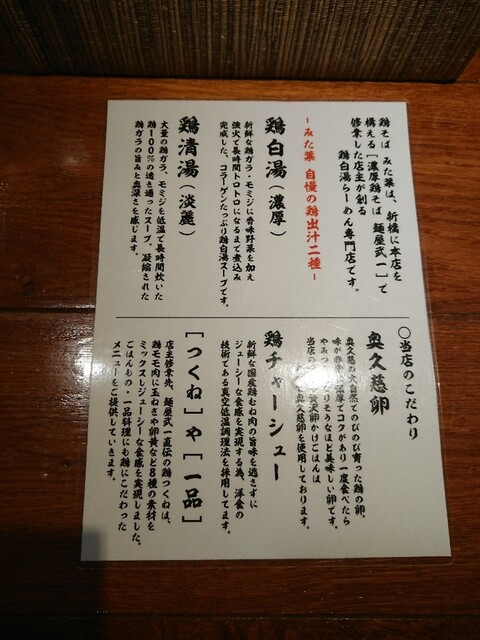 鶏そば みた葉は、新橋に本店を
構える［濃厚鶏そば 麺屋武一］で
修業した店主が創る
鶏白湯らーめん専門店です。
－みた葉 自慢の鶏出汁二種－
鶏白湯（濃厚）
新鮮な鶏ガラ・モミジに香味野菜を加え
強火で長時間トロトロになるまで煮込み
完成した、コラーゲンたっぷり鶏白湯スープです。
鶏清湯（淡麗）
大量の鶏ガラ、モミジを低温で長時間炊いた
鶏100％の透き通ったスープ。凝縮された
鶏ガラの旨みと奥深さを感じます。
〇当店のこだわり
奥久慈卵
奥久慈の大自然でのびのび育った鶏の卵。
味が非常に濃厚でコクがあり一度食べたら
やみつきになりそうなほど美味しい卵です。
当店の 贅沢卵かけごはんは
奥久慈卵を使用しております。
鶏チャーシュー
新鮮な国産鶏むね肉の旨味を逃さずに
ジューシーな食感を実現する為、洋食の
技術である真空低温調理法を採用してます。
［つくね］や［一品］
店主修業先、麺屋武一直伝の鶏つくねは、
鶏モモ肉に玉ねぎや卵黄など8種の素材を
ミックスしジューシーな食感を実現しました。
ごはんもの・一品料理にも鶏にこだわった
メニューをご提供していきます。